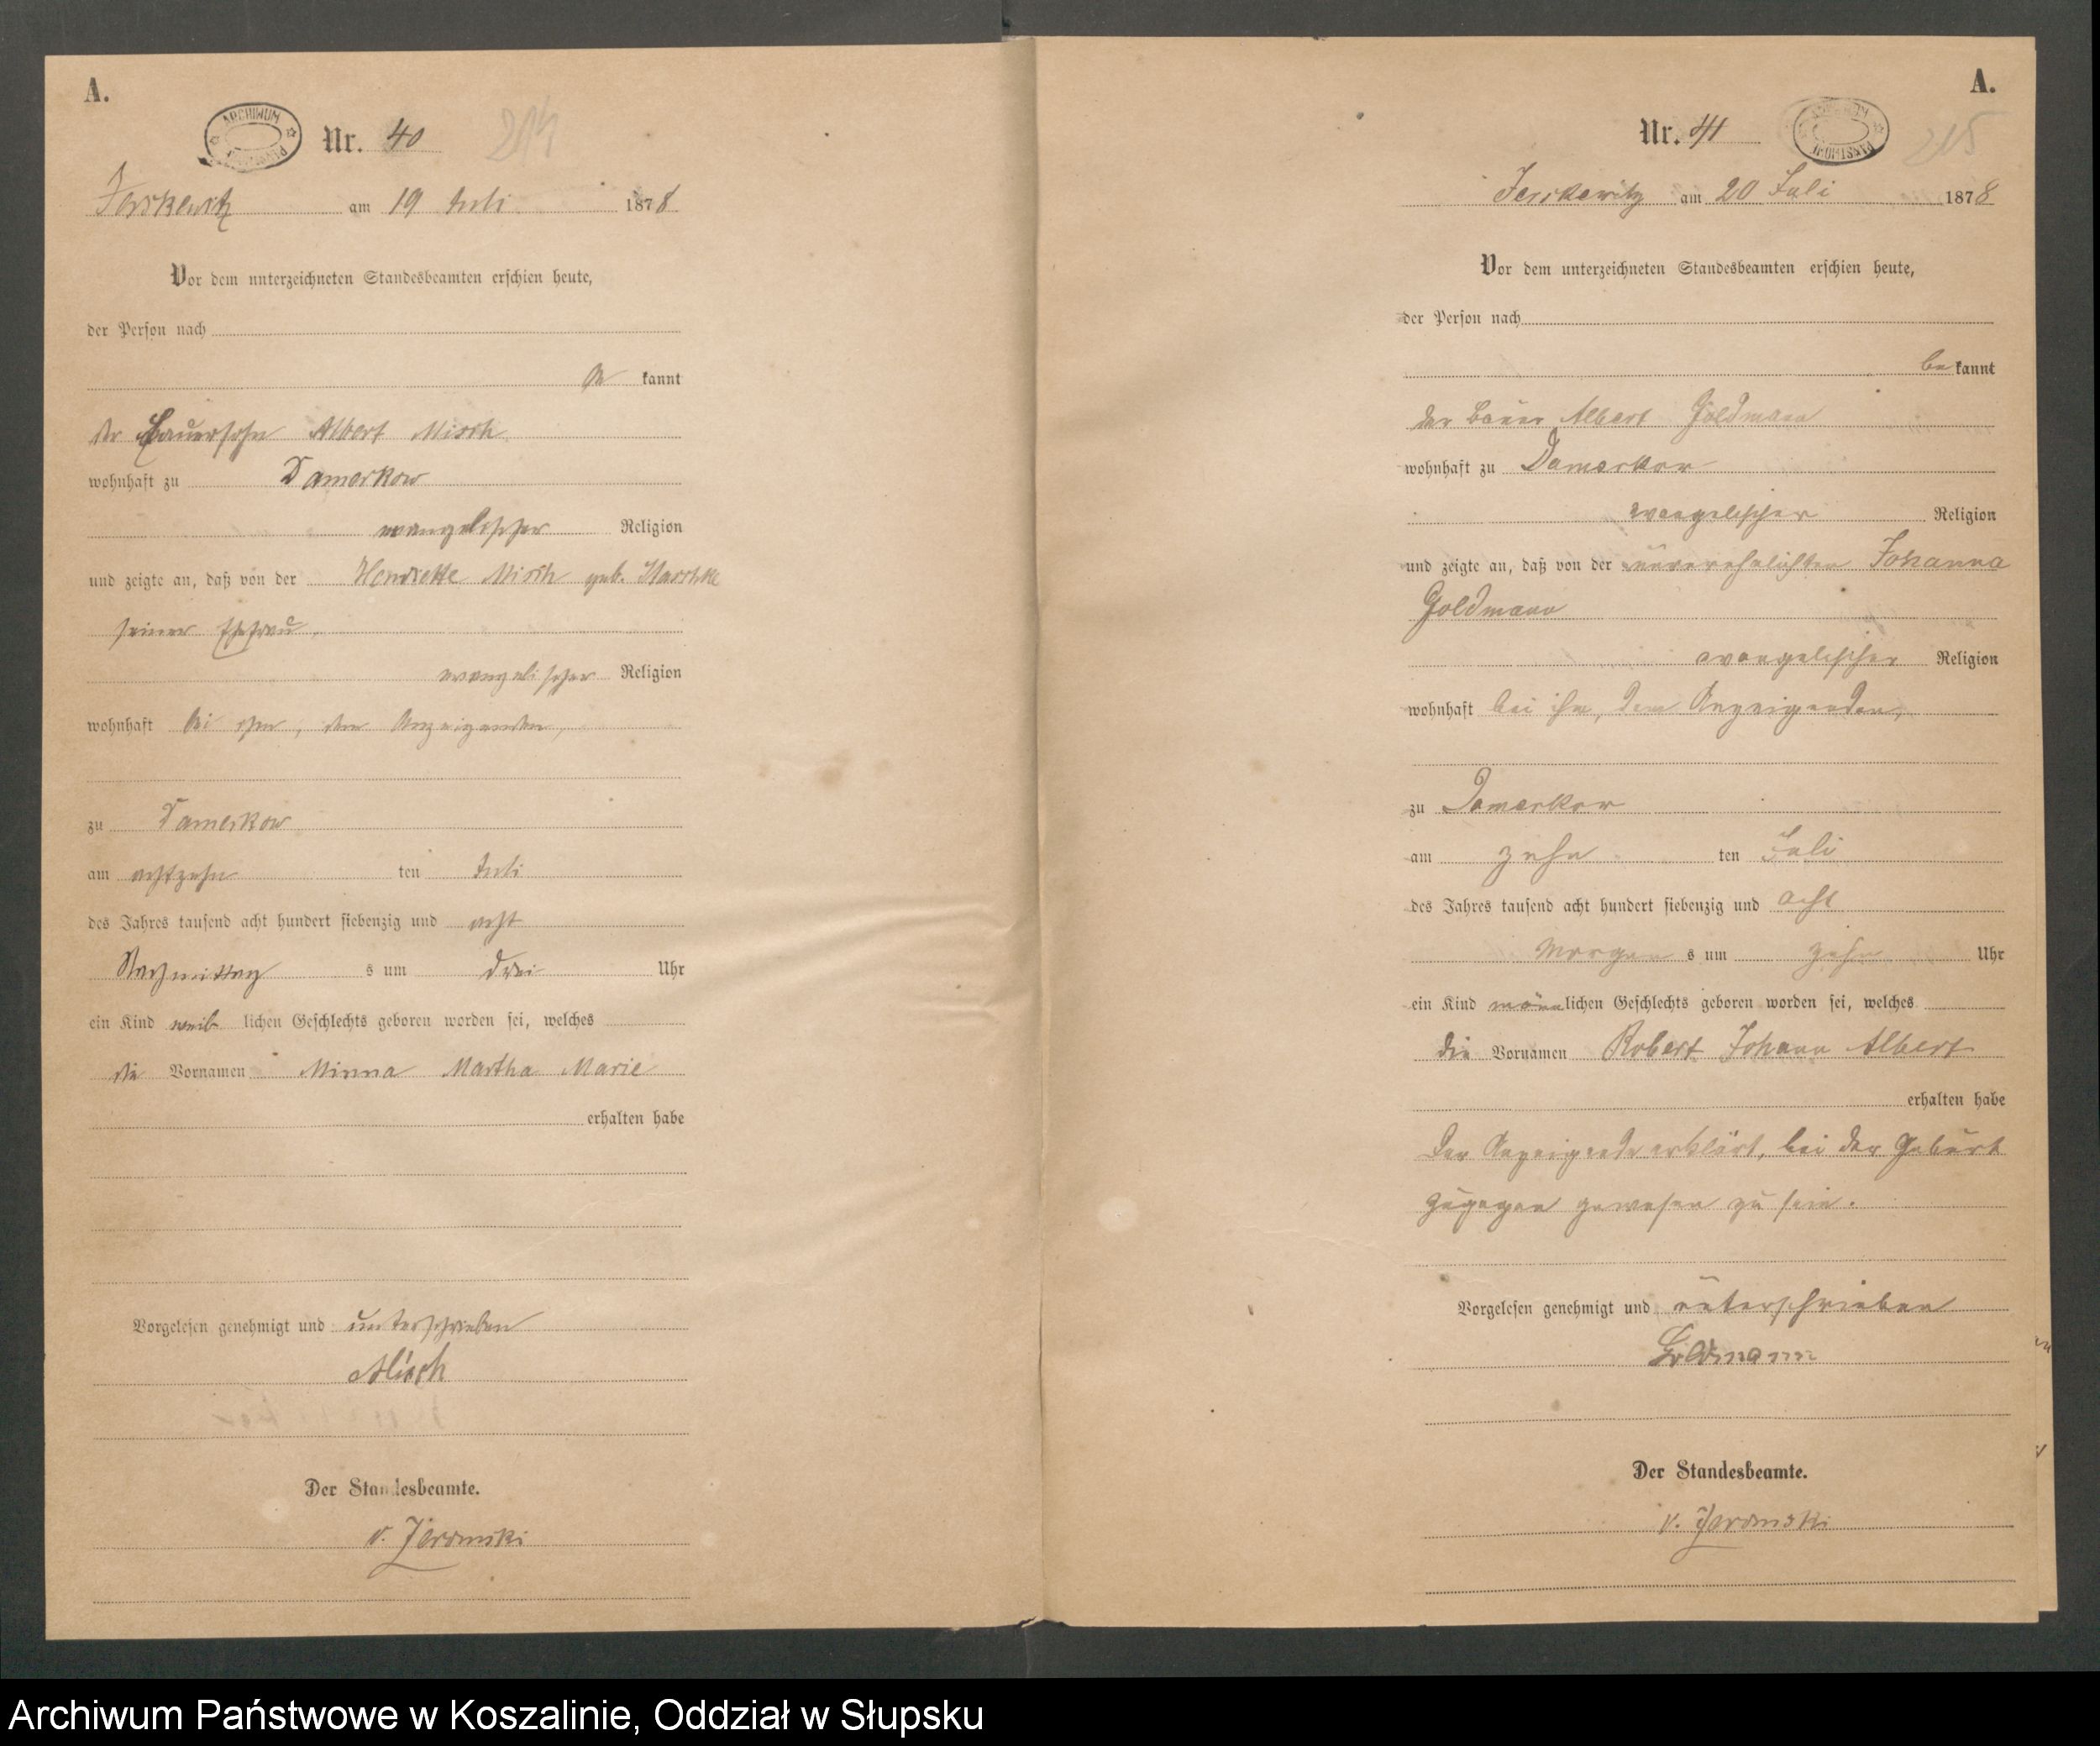 A.
ARCHIWUM
Nr. 40
214
Jerskewitz am 19 Juli 1878
Vor dem unterzeichneten Standesbeamten erschien heute,
der Person nach
be kannt
der Bauersohn Albert Misch
wohnhaft zu Damerkow
evangelischer Religion
und zeigte an, daß von der Henriette Misch geb. Maschke
seiner Ehefrau,
evangelischer Religion
wohnhaft bei ihm, dem Anzeigenden,
zu Damerkow
am achtzehn ten Juli
des Jahres tausend acht hundert siebenzig und acht
Nachmittag s um drei Uhr
ein Kind weib lichen Geschlechts geboren worden sei, welches
die Vornamen Minna Martha Marie
erhalten habe
Vorgelesen genehmigt und unterschrieben
Misch
Der Standesbeamte.
v. Jeromski
A.
Nr. 41
215
Jerskewitz am 20 Juli 1878
Vor dem unterzeichneten Standesbeamten erschien heute,
der Person nach
be kannt
der Bauer Albert Goldmann
wohnhaft zu Damerkow
evangelischer Religion
und zeigte an, daß von der unverehelichten Johanna
Goldmann
evangelischer Religion
wohnhaft bei ihm, dem Anzeigenden,
zu Damerkow
am zehn ten Juli
des Jahres tausend acht hundert siebenzig und acht
Morgen s um zehn Uhr
ein Kind männlichen Geschlechts geboren worden sei, welches
die Vornamen Robert Johann Albert
erhalten habe
Der Anzeigende erklärt, bei der Geburt
zugegen gewesen zu sein.
Vorgelesen genehmigt und unterschrieben
Goldmann
Der Standesbeamte.
v. Jeromski
Archiwum Państwowe w Koszalinie, Oddział w Słupsku